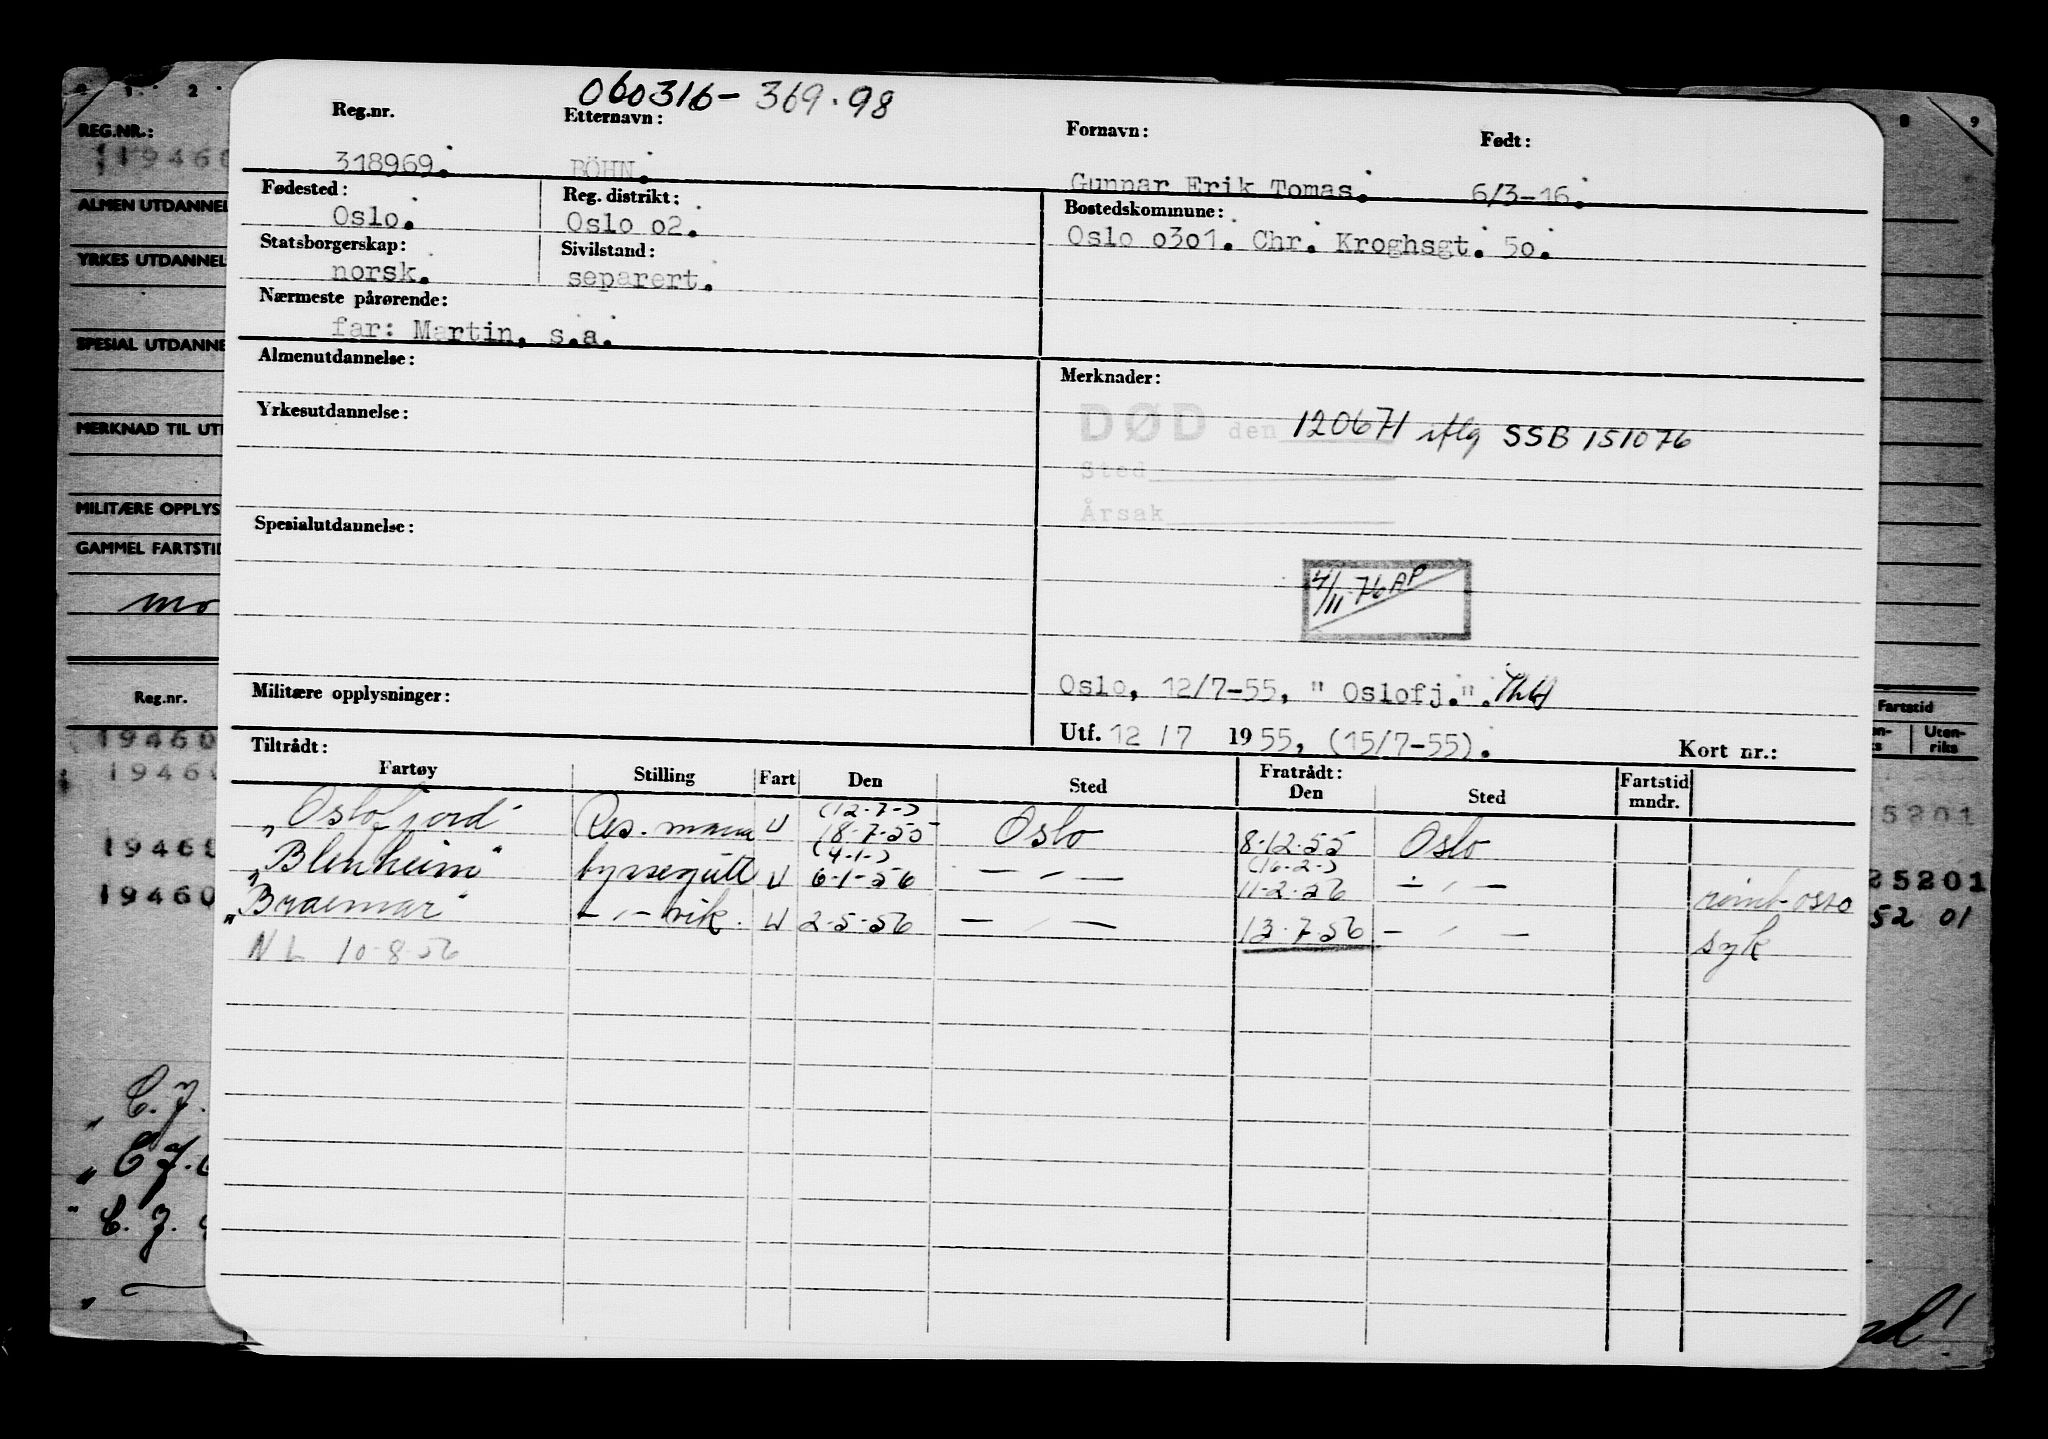 060316-369.98
Reg.nr. Etternavn: Fornavn: Født:
318969. BÖHN. Gunnar Erik Tomas. 6/3-16.
Fødested: Reg. distrikt: Bostedskommune:
Oslo. Oslo o2. Oslo o3o1. Chr. Kroghsgt. 5o.
Statsborgerskap: Sivilstand:
norsk. separert.
Nærmeste pårørende:
far: Martin, s.a.
Almenutdannelse: Merknader:
Yrkesutdannelse:
DØD den 120671 iflg SSB 151076
Sted
Årsak
Spesialutdannelse:
4/11-76 AP
Militære opplysninger: Oslo, 12/7-55, " Oslofj.".
Utf. 12 /7 1955, (15/7-55). Kort nr.:
Tiltrådt: Fratrådt:
Fartøy Stilling Fart Den Sted Den Sted Fartstid mndr.
(12-7-)
"Oslofjord" Res. mann U 18-7-55 Oslo 8-12-55 Oslo
(4-1-) (16-2-)
"Blenheim" byssegutt U 6-1-56 — " — 11-2-56 — " —
"Braemar" — " — vik. U 2-5-56 — " — 13-7-56 — " — syk
NL 10-8-56
0 1 2 8 9
REG.NR.:
119460
ALMEN UTDANNEL
YRKES UTDANNEL
SPESIAL UTDANNE
MERKNAD TIL UT
MILITÆRE OPPLYS
GAMMEL FARTSTI
mo
Reg.nr. Fartstid
Uten-riks
19460
1946
1946
19460
5201
25201
52 01
" C. J.
" C J.
" C. J.